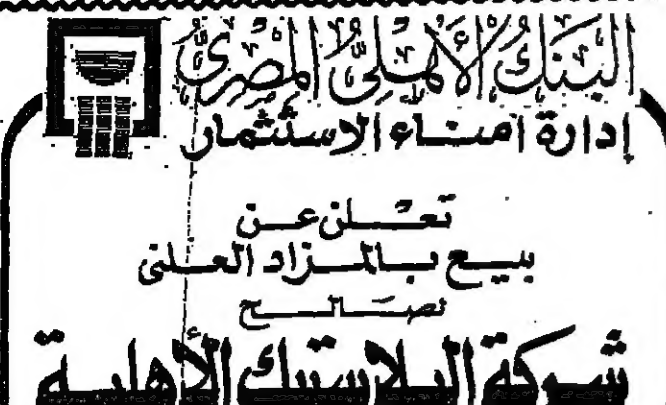 البنك الأهلي المصري
إدارة أمناء الاستثمار
تعلن عن
بيع بالمزاد العلنى
لصالح
شركة البلاستيك الأهلية